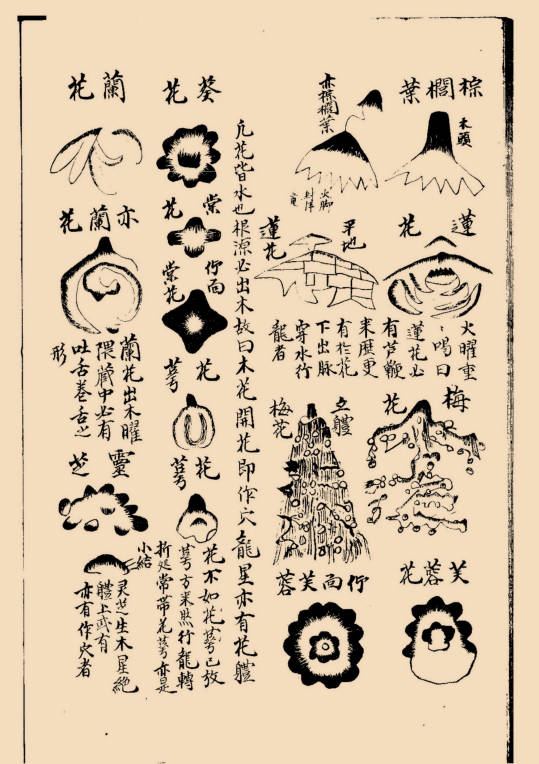 棕櫚葉
木頭
亦棕櫚葉
火脚
蓮花
平地
蓮花
火曜重
ミ喝曰
蓮花必
有芦鞭
来歷更
有於花
下出脉
穿水行
龍者
梅花
立體
梅花
芙蓉花
行面芙蓉
凡花皆水也根源必出木故曰木花開花即作穴龍星亦有花體
葵花
棠花
行面棠花
花萼
花萼
花不如花萼已放
萼方来然行龍轉
折处常帶花萼亦是
小結
蘭花
亦蘭花
蘭花出木曜
隈藏中必有
吐舌卷舌之
形
靈芝
灵芝生木星絶
體上或有
亦有作穴者